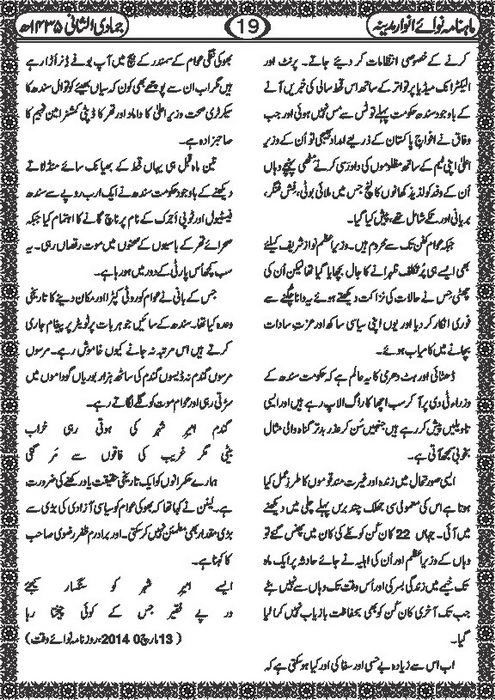 ماہنامہ نوائے انوار مدینہ
19
جمادی الثانی ۱۴۳۵ھ
کرنے کے خصوصی انتظامات کر دیئے جاتے۔ پرنٹ اور
الیکٹرانک میڈیا پر تواتر کے ساتھ اس قحط سالی کی خبریں آنے
کے باوجود سندھ حکومت پہلے تو ٹس سے مس نہیں ہوئی اور جب
وفاق نے افواج پاکستان کے ذریعے امداد بھیجی تو اُن کے وزیر
اعلیٰ اپنی ٹیم کے ساتھ مظلوموں کی داد رسی کرنے مٹھی پہنچے وہاں
اُن کے وفد کو لذیذ کھانوں کا لنچ جس میں ملائی بوٹی، فش فنگر،
بریانی اور تکے شامل تھے، پیش کیا گیا۔
جبکہ عوام کفن تک سے محروم ہیں۔ وزیر اعظم نواز شریف کیلئے
بھی ایسے ہی پُر تکلف ظہرانے کا جال بچھایا گیا تھا لیکن اُن کی
چھٹی حس نے حالات کی نزاکت دیکھتے ہوئے یہ دانا چُگنے سے
فوری انکار کر دیا اور یوں اپنی سیاسی ساکھ اور عزتِ سادات
بچانے میں کامیاب ہوئے۔
ڈھٹائی اور ہٹ دھرمی کا یہ عالم ہے کہ حکومت سندھ کے
وزراء ٹی وی پر آ کر سب اچھا کا راگ الاپ رہے ہیں اور ایسی
تاویلیں پیش کر رہے ہیں جنہیں سُن کر عذر بدتر گناہ والی مثال
بخوبی سمجھ آتی ہے۔
ایسی صورتحال میں زندہ اور غیرت مند قوموں کا طرز عمل کیا
ہوتا ہے اس کی معمولی سی جھلک چند برس پہلے چلی میں دیکھنے
میں آئی۔ جہاں 22 کان کن کوئلے کی کان میں پھنس گئے تو
وہاں کے وزیر اعظم اور اُن کی اہلیہ نے جائے حادثہ پر ایک ماہ
تک خیمے میں زندگی بسر کی اور اُس وقت تک وہاں سے نہیں ہٹے
جب تک آخری کان کن کو بھی بحفاظت بازیاب نہیں کرا لیا
گیا۔
اب اس سے زیادہ بے حسی اور سفاکی اور کیا ہو سکتی ہے کہ
بھوکی ننگی عوام کے سمندر کے بیچ میں آپ یوں ڈنر اُڑا رہے
ہیں مگر اب ان سے پوچھے بھی کون کہ سیاں بھیئے کوتوال سندھ کا
سیکرٹری صحت وزیر اعلیٰ کا داماد اور تھر کا ڈپٹی کمشنر امین فہیم کا
صاحبزادہ ہے۔
تین ماہ قبل ہی یہاں قحط کے بھیانک سائے منڈلاتے
دیکھنے کے باوجود حکومت سندھ نے ایک ارب روپے سے سندھ
فیسٹیول اور ٹوپی اُجرک کے نام پر ناچ گانے کا اہتمام کیا جبکہ
صحرائے تھر کے باسیوں کے صحنوں میں موت رقصاں رہی۔ یہ
سب کچھ اُس پارٹی کے دور میں ہو رہا ہے۔
جس کے بانی نے عوام کو روٹی کپڑا اور مکان دینے کا تاریخی
وعدہ کیا تھا۔ سندھ کے سائیں جو ہر بات پر ٹویٹر پر پیغام جاری
کرتے ہیں اس مرتبہ نہ جانے کیوں خاموش رہے۔ مرسوں
مرسوں گندم نہ ڈیسوں گندم کی ساٹھ ہزار بوریاں گوداموں میں
سڑتی رہی اور عوام موت کو گلے لگاتے رہے۔
گندم امیرِ شہر کی ہوتی رہی خراب
بیٹی مگر غریب کی فاقوں سے مر گئی
ہمارے حکمرانوں کو ایک تاریخی حقیقت یاد رکھنے کی ضرورت
ہے۔ لینن نے کہا تھا کہ بھوکی عوام کو سیاسی آزادی کی بڑی سے
بڑی مقدار بھی مطمئن نہیں کر سکتی۔ اور برادرم ظفر رضوی صاحب
کا کہنا ہے۔
ایسے امیرِ شہر کو سنگسار کیجئے
در پے فقیر جس کے کوئی چیختا رہا
(13 مارچ 2014ء روزنامہ نوائے وقت)